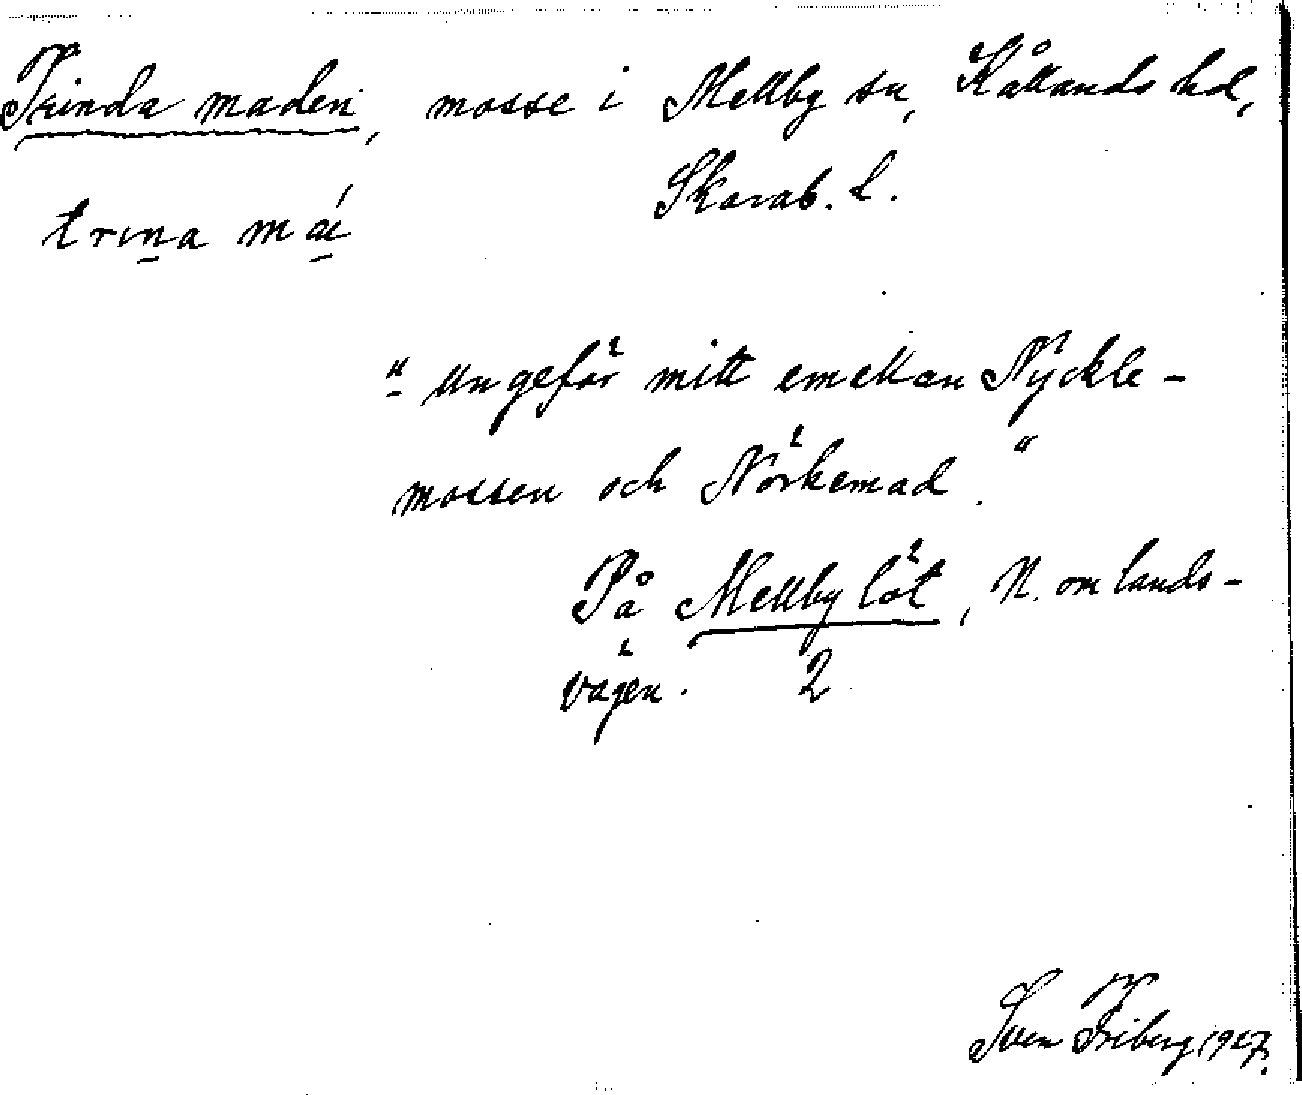 Trinda maden, mosse i Mellby sn, Kållands hd,
Skarab. l.
trina mái
"Ungefär mitt emellan Nyckle-
mossen och Nörkemad."
På Mellby löt, N. om lands-
vägen. 2
Sven Friberg 1927.